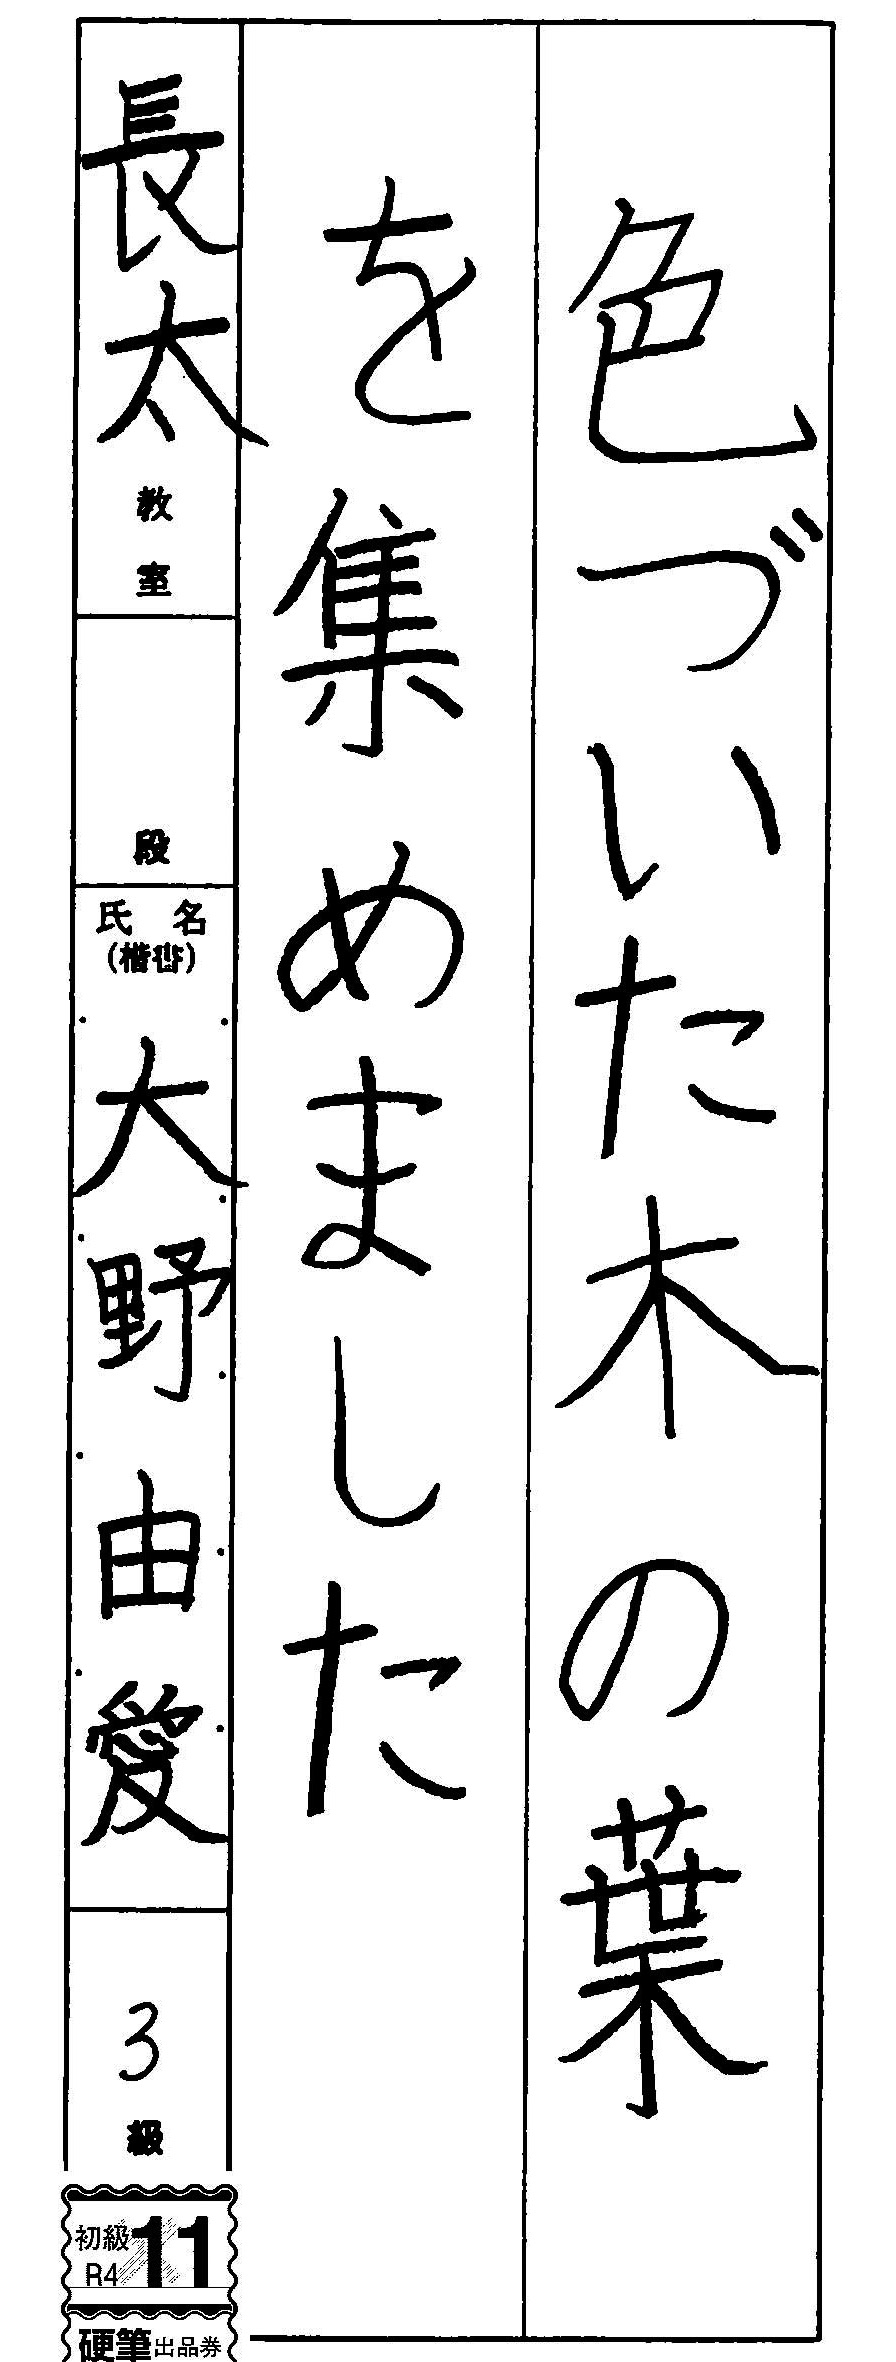 色づいた木の葉
を集めました
長太教室
段
氏名
(楷書)
大野由愛
3級
初級
R4
11
硬筆出品券